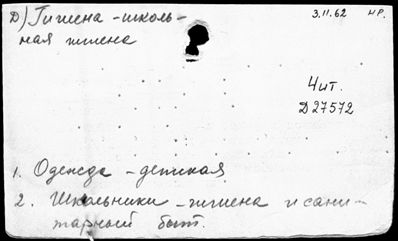 Д) Гигиена - школь-
ная гигиена
3.11.62 НР.
Чит.
Д 27572
1. Одежда - детская
2. Школьники - гигиена и сани-
тарный быт.